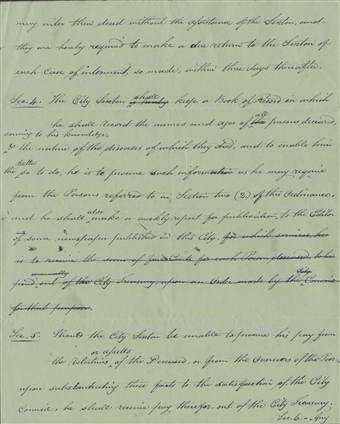 may inter their dead without the assistance of the Sexton, and
they are hereby required to make a due return to the Sexton of
each case of interment, so made, within three days thereafter.
Sec. 4. The City Sexton shall keep a Book of Record in which
he shall record the names and ages of all persons deceased,
coming to his knowledge
& the nature of the diseases of which they died, and to enable him
better
to so do, he is to procure such information as he may require
from the Persons referred to in Section two (2) of this Ordinance,
and he shall also make a weekly report for publication, to the Editor
of some newspaper published in this City, for which services, he
is to receive the sum of Cents for each Person deceased, to be
paid, out of the City Treasury, upon an Order made by the City Council
for that purpose.
Sec. 5. Should the City Sexton be unable to procure his pay from
or assets
the relatives, of the Deceased, or from the Overseers of the Poor,
upon substantiating those facts to the satisfaction of the City
Council, he shall receive pay therefor, out of the City Treasury.
Sec. 6. Any